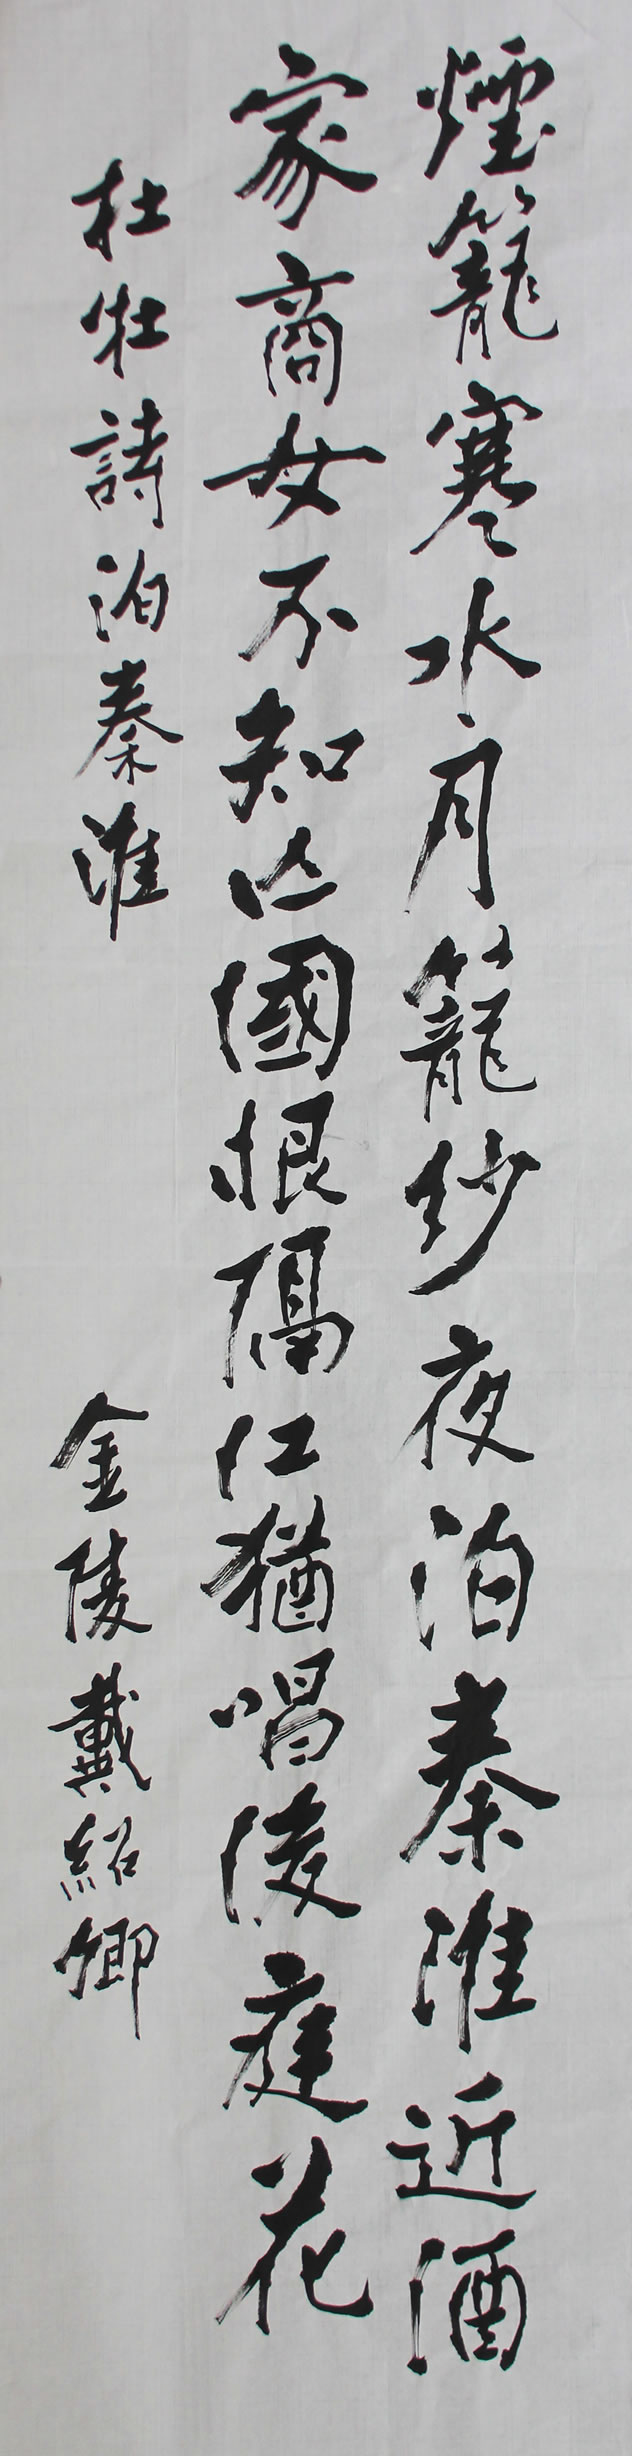 煙籠寒水月籠紗夜泊秦淮近酒
家商女不知亡國恨隔江猶唱後庭花
杜牡詩泊秦淮
金陵戴紹卿